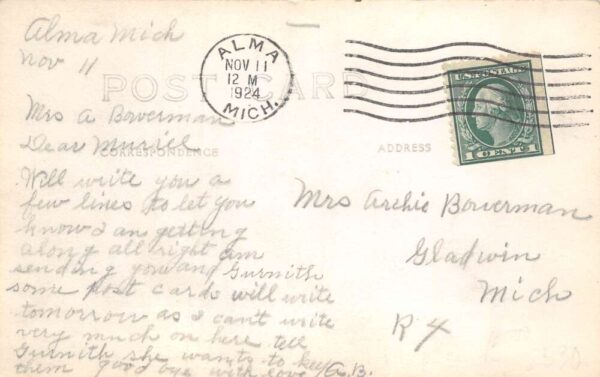 Alma Mich
Nov 11
ALMA
NOV 11
12 M
1924
MICH.
POST CARD
U.S. POSTAGE
1 CENT 1
Mrs A Bowerman
Dear Muriel
CORRESPONDENCE
ADDRESS
Will write you a
few lines to let you
know I an getting
along all right am
sending you and Gurnith
some post cards will write
tomorrow as I can't write
very much on here tell
Gurnith she wants to keep
them good bye with love A.B.
Mrs Archie Bowerman
Gladwin
Mich
R 4